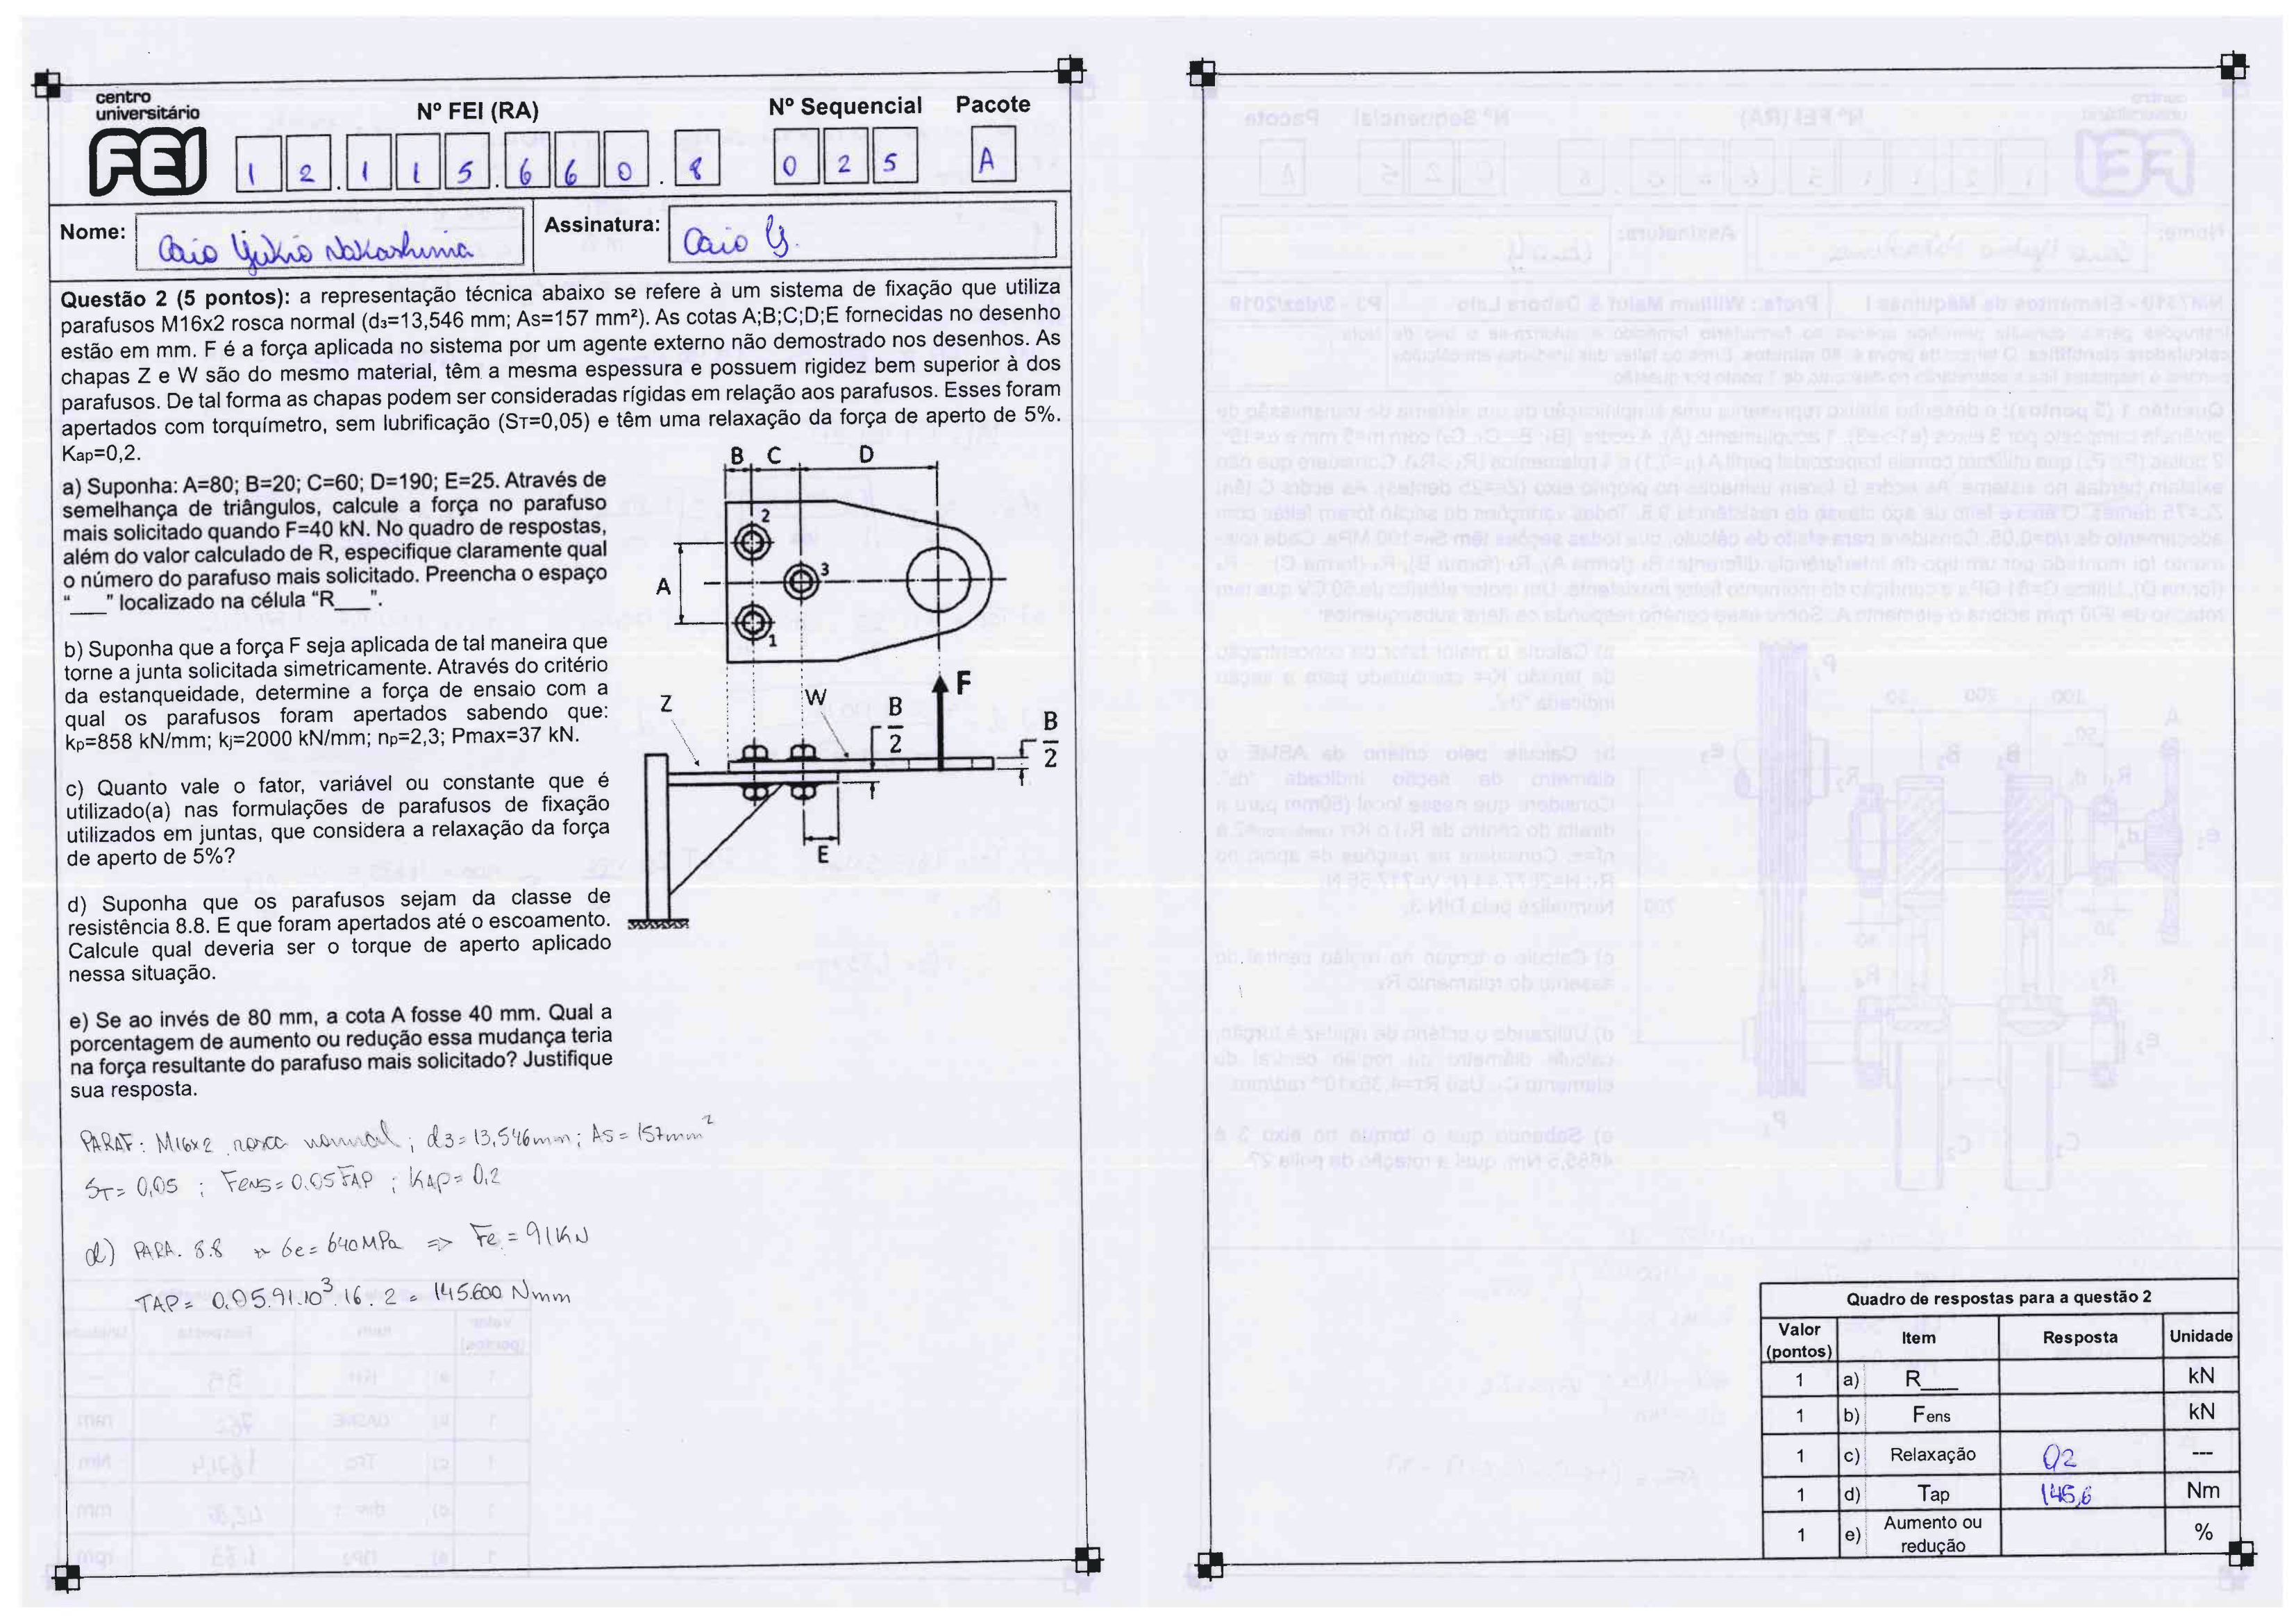 centro
universitário
FEI
Nº FEI (RA)
Nº Sequencial
Pacote
1 2 . 1 1 5 . 6 6 0 . 8
0 2 5
A
Nome: Caio Yukio Nakashima
Assinatura: Caio Y.
Questão 2 (5 pontos): a representação técnica abaixo se refere à um sistema de fixação que utiliza
parafusos M16x2 rosca normal (d₃=13,546 mm; As=157 mm²). As cotas A;B;C;D;E fornecidas no desenho
estão em mm. F é a força aplicada no sistema por um agente externo não demostrado nos desenhos. As
chapas Z e W são do mesmo material, têm a mesma espessura e possuem rigidez bem superior à dos
parafusos. De tal forma as chapas podem ser consideradas rígidas em relação aos parafusos. Esses foram
apertados com torquímetro, sem lubrificação (Sᴛ=0,05) e têm uma relaxação da força de aperto de 5%.
Kap=0,2.
a) Suponha: A=80; B=20; C=60; D=190; E=25. Através de
semelhança de triângulos, calcule a força no parafuso
mais solicitado quando F=40 kN. No quadro de respostas,
além do valor calculado de R, especifique claramente qual
o número do parafuso mais solicitado. Preencha o espaço
“___” localizado na célula “R___”.
b) Suponha que a força F seja aplicada de tal maneira que
torne a junta solicitada simetricamente. Através do critério
da estanqueidade, determine a força de ensaio com a
qual os parafusos foram apertados sabendo que:
kp=858 kN/mm; kj=2000 kN/mm; np=2,3; Pmax=37 kN.
c) Quanto vale o fator, variável ou constante que é
utilizado(a) nas formulações de parafusos de fixação
utilizados em juntas, que considera a relaxação da força
de aperto de 5%?
d) Suponha que os parafusos sejam da classe de
resistência 8.8. E que foram apertados até o escoamento.
Calcule qual deveria ser o torque de aperto aplicado
nessa situação.
e) Se ao invés de 80 mm, a cota A fosse 40 mm. Qual a
porcentagem de aumento ou redução essa mudança teria
na força resultante do parafuso mais solicitado? Justifique
sua resposta.
B C D
2
A
3
1
Z
W
B
2
F
B
2
E
PARAF: M16x2 rosca normal; d3=13,546mm; AS=157mm²
ST= 0,05 ; FENS=0.05FAP ; KAP= 0,2
d) PARA. 8.8 → бe= 640MPa => Fe=91KN
TAP= 0.05.91.10³.16.2 = 145.600 Nmm
Quadro de respostas para a questão 2
Valor (pontos) Item Resposta Unidade
1 a) R___ kN
1 b) Fens kN
1 c) Relaxação 02 ---
1 d) Tap 145,6 Nm
1 e) Aumento ou redução %